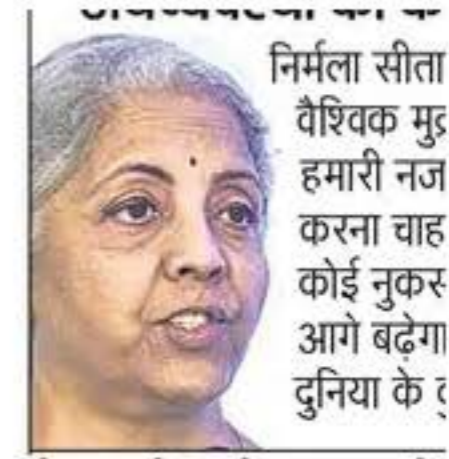 निर्मला सीता
वैश्विक मुद्र
हमारी नज
करना चाह
कोई नुकस
आगे बढ़ेगा
दुनिया के